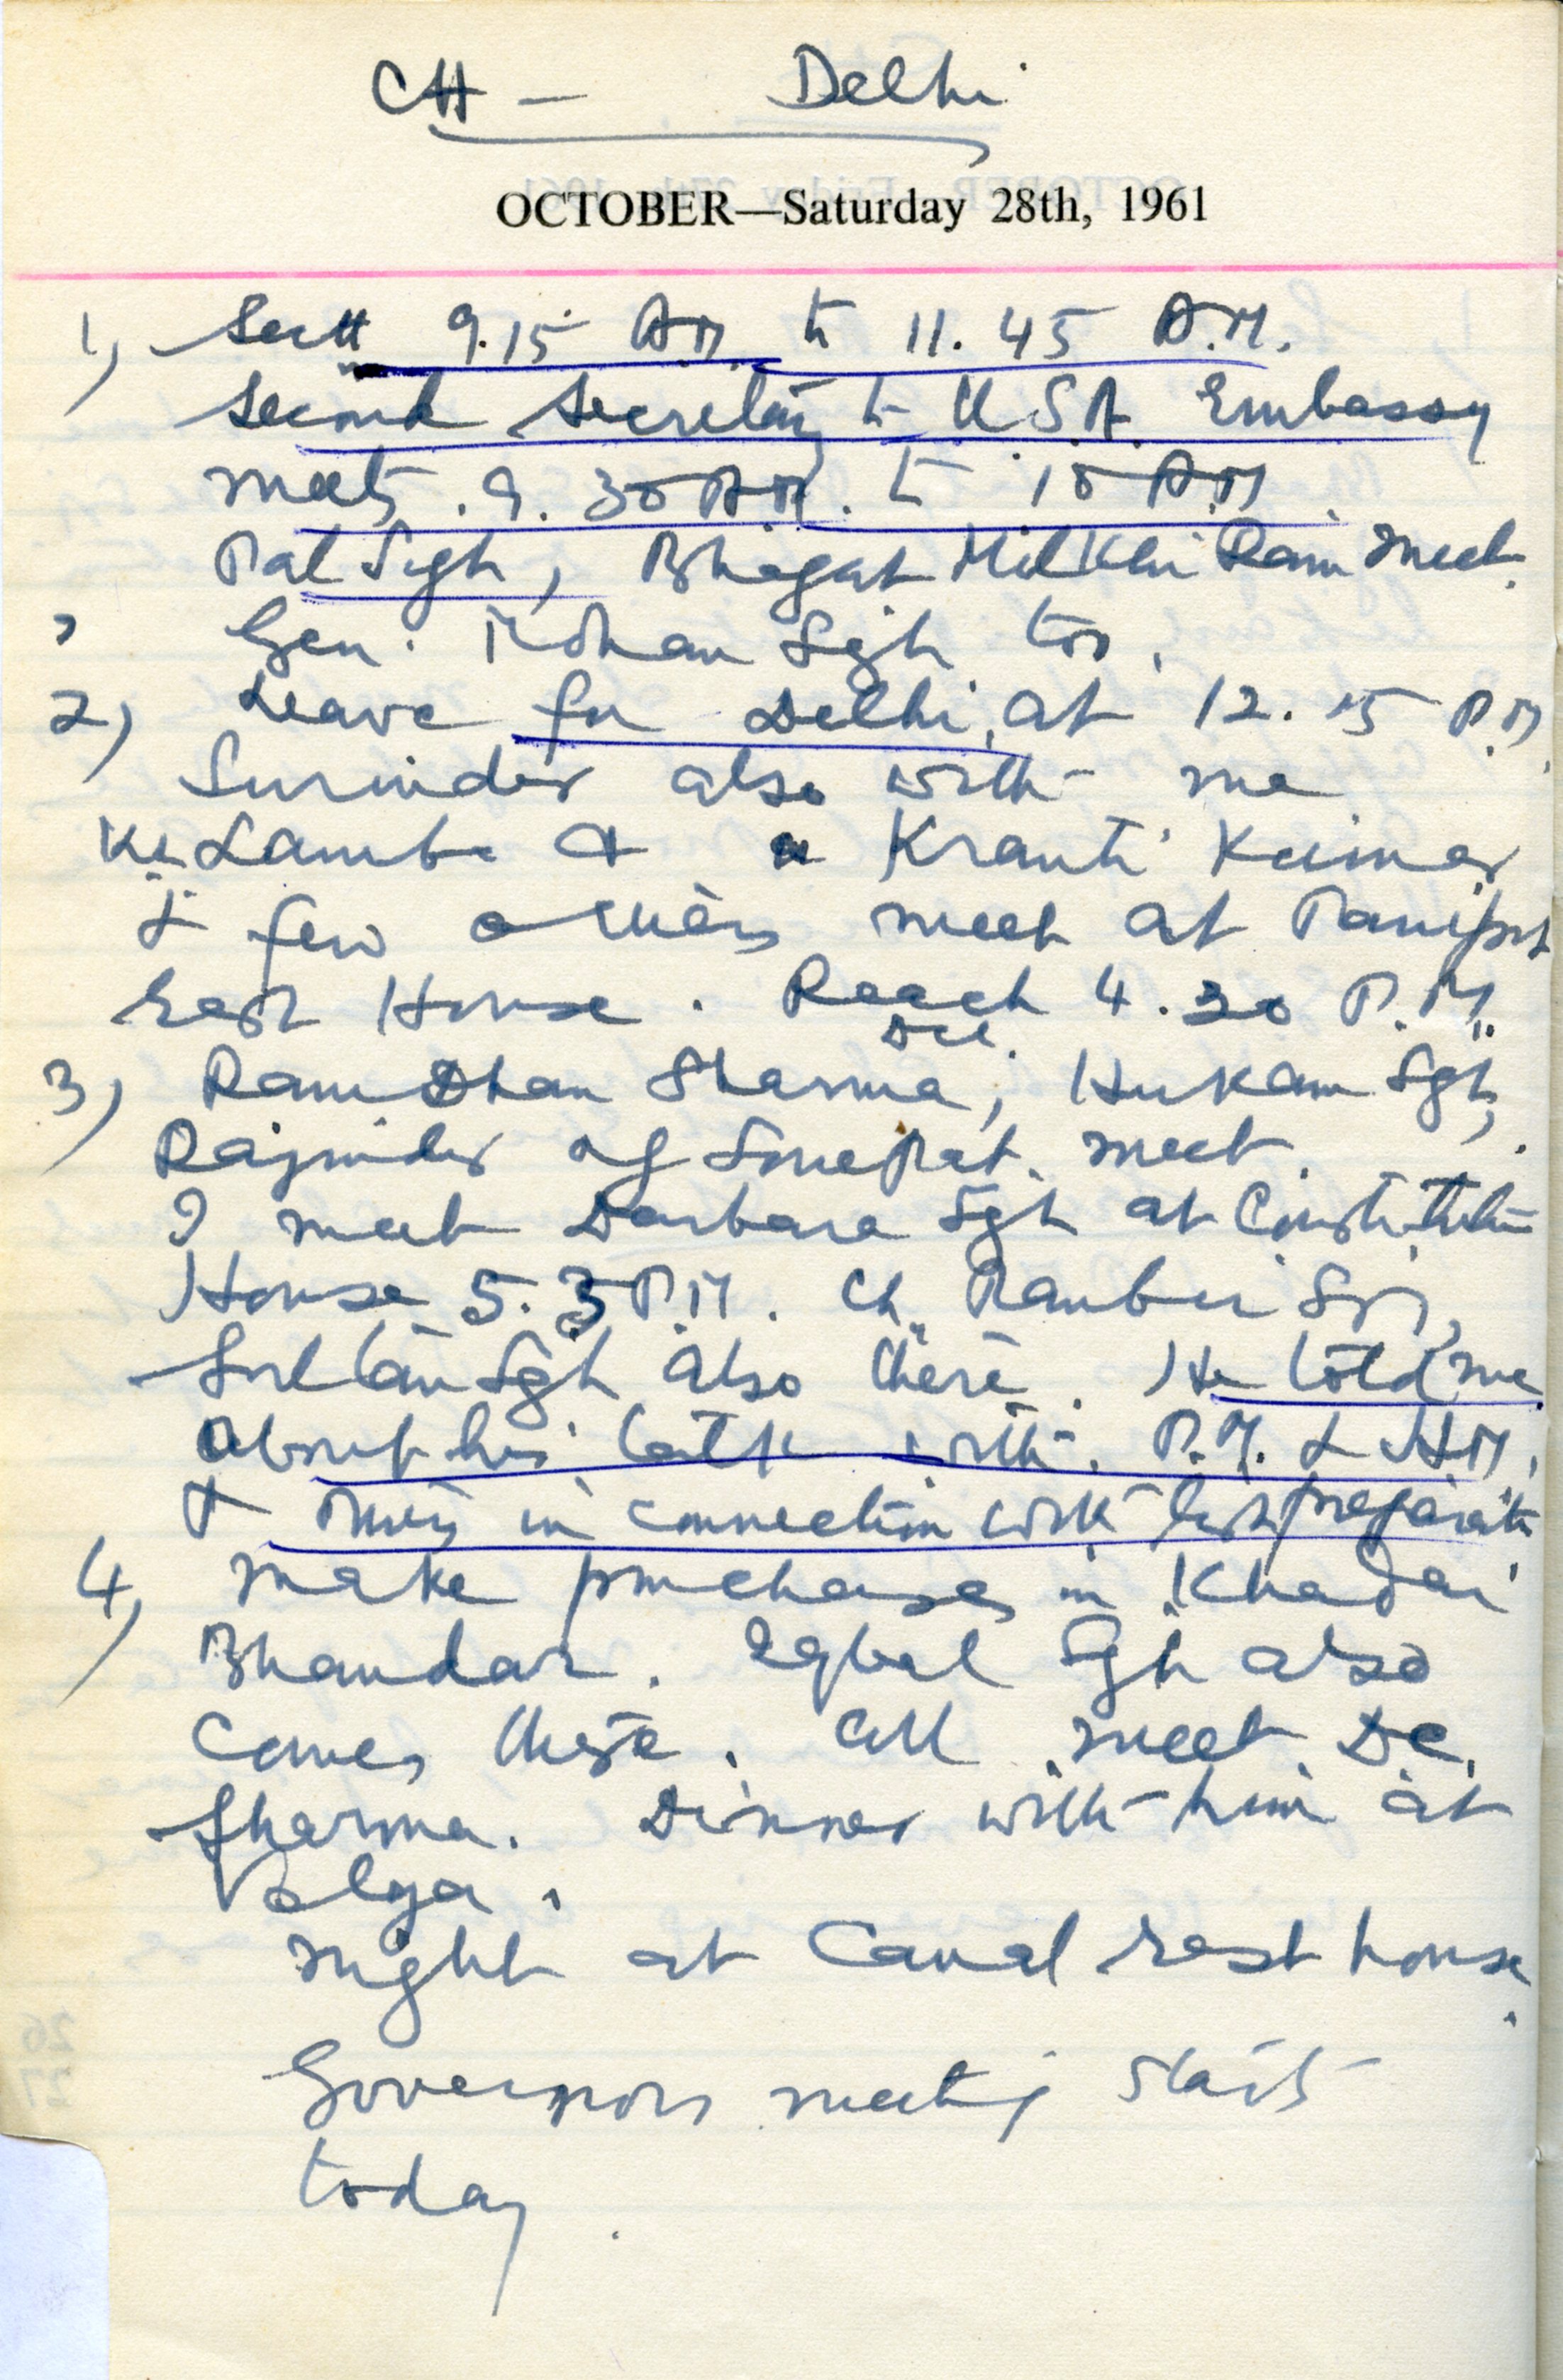 CH - Delhi
OCTOBER—Saturday 28th, 1961
1) Sectt 9.15 A.M. to 11.45 A.M.
Second Secretary to U.S.A. Embassy
meets. 9.30 A.M. to 10 A.M
Pal Sigh, Bhagat Milkhi Ram meet.
Gen. Mohan Sgh too.
2) Leave for Delhi, at 12.15 P.M.
Surinder also with me
Lamba & Kranti Kumar
& few others meet at Panipat
rest House. Reach 4.30 P.M.
Del.
3) Ram Dhan Sharma, Hukam Sgh,
Rajinder of Sonepat. meet.
I meet Darbara Sgh at Constitution
House 5.3 P.M. Ch. Ranbir Sgh,
Sultan Sgh also there. He told me
about his talk with. P.M. & H.M.
& in connection with
4) make purchases in Khadai
Bhandar. Iqbal Sgh also
comes there. all meet De.
Sharma. Dinner with him at
Volga.
night at Canal rest house.
Governors meeting starts
today.